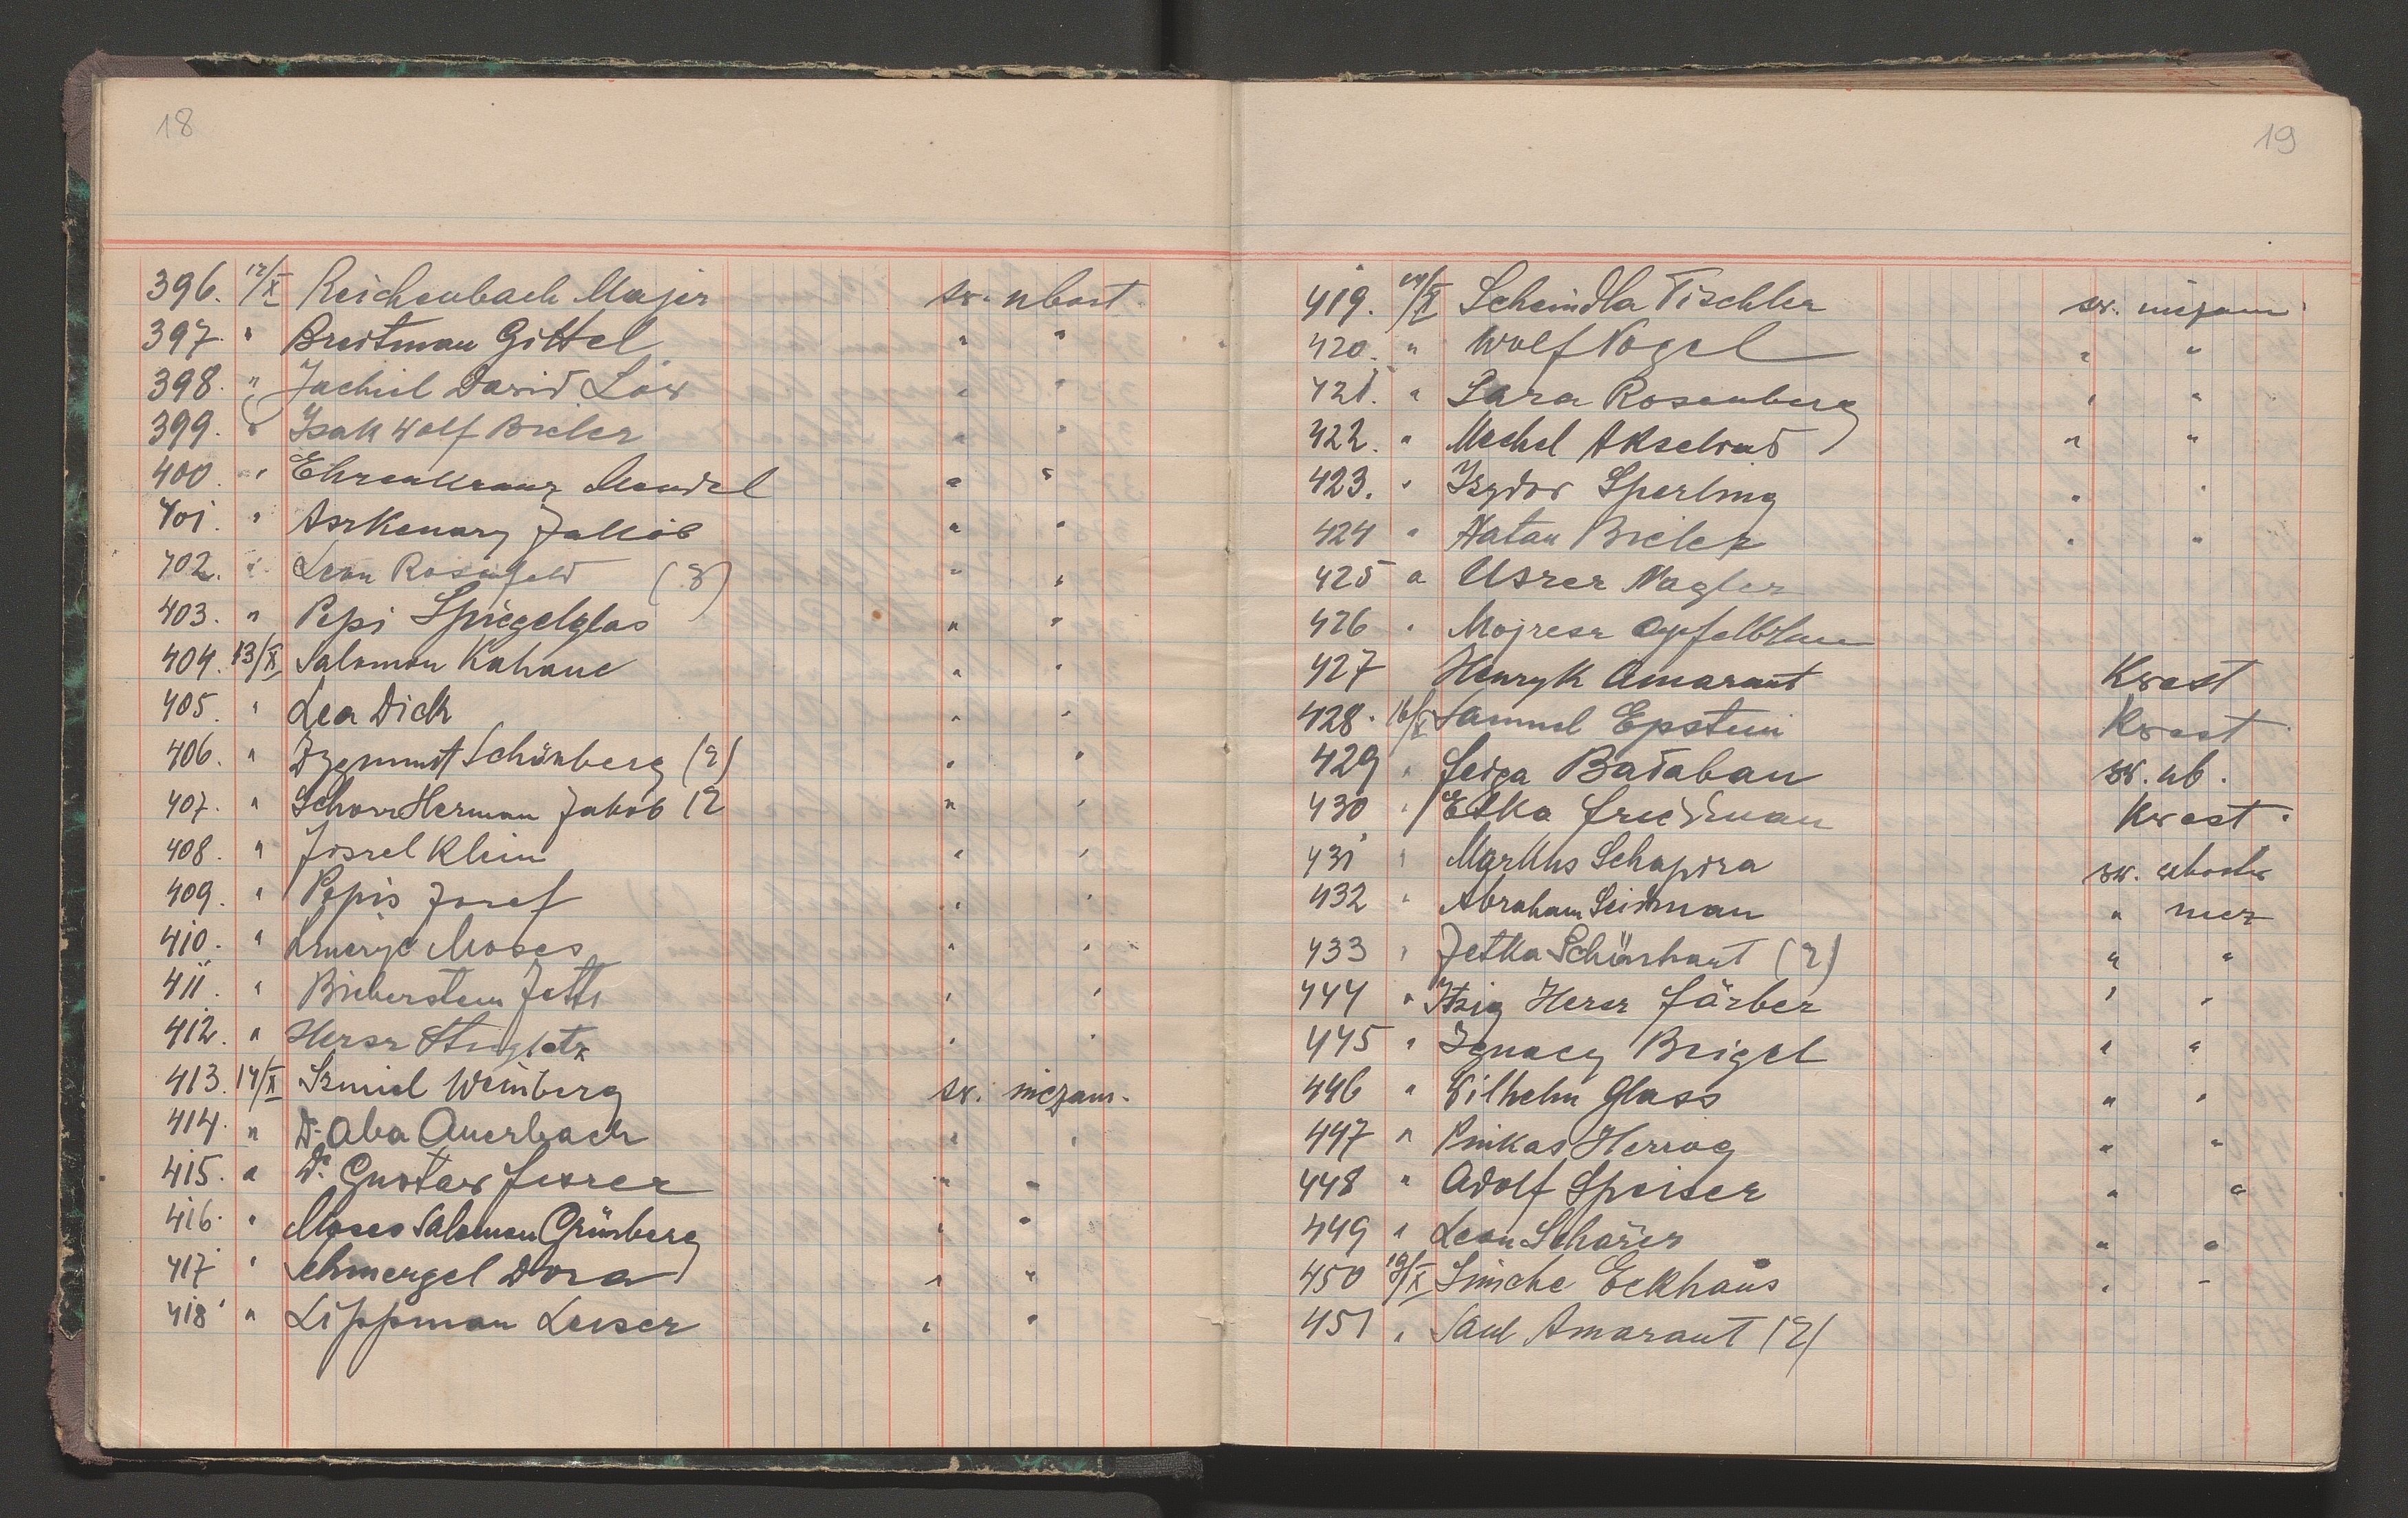 18
396. 12/X Reichenbach Majer św. ubost.
397. " Breitman Gittel " "
398. " Jachiel Dawid Löw " "
399. " Izak Wolf Bieler " "
400. " Ehrenkranz Mendel " "
401. " Aszkenazy Jakób " "
402. " Leon Rosenfeld (3) " "
403. " Pepi Spiegelglas " "
404. 13/X Salomon Kahane " "
405. " Lea Dick " "
406. " Zygmunt Schönberg (2) " "
407. " Schorr Herman Jakób (2 " "
408. " Josrel Klein " "
409. " Pepis Josef " "
410. " Moses " "
411. " Bieberstein Jetti " "
412. " Hersz Stieglitz " "
413. 14/X Szmiel Weinberg św. niezam.
414. " Dr Aba Auerbach " "
415. " Dr Gustaw " "
416. " Moses Salomon Grünberg " "
417 " Schmergel Dora " "
418 " Lippman Leiser " "
19
419. 14/X Scheindla Tischler św. niezam.
420. " Wolf Vogel " "
421. " Sara Rosenberg " "
422. " Mechel Akselrad " "
423. " Izydor Sperling " "
424 " Natan Bieler " "
425 " Uszer Nagler
426 " Mojzesz Apfelbaum
427 Henryk Amarant Kwest
428. 16/X Samuel Epstein Kwest
429 " Feiga Bałaban św. ub.
430 " Etka Friedman Kwest.
431 " Markus Schapira św.
432 " Abraham Seidman " niez
433 " Jetka Schönhaut (2) " "
444 " Itzig Hersz Färber " "
445 " Ignacy Beigel " "
446 " Wilhelm Glass " "
447 " Pinkas Herzog " "
448 " Adolf Speiser " "
449 " Leon Schärer " "
450 19/X Simche Eckhaus " "
451 " Saul Amarant (2)